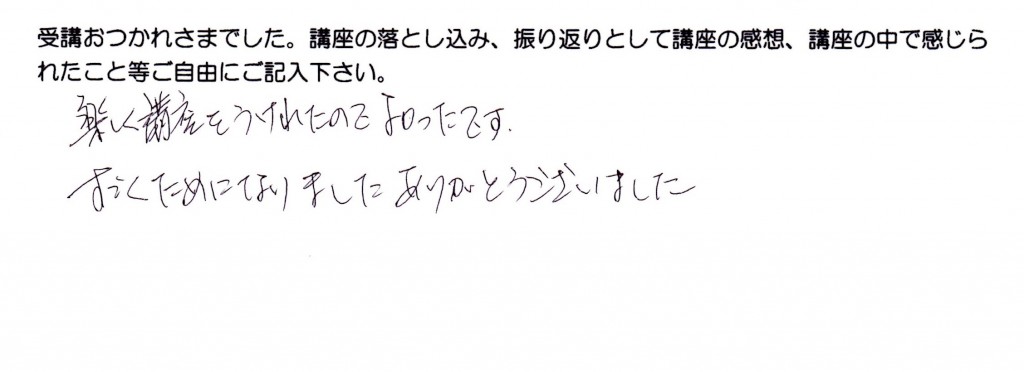 受講おつかれさまでした。講座の落とし込み、振り返りとして講座の感想、講座の中で感じら
れたこと等ご自由にご記入下さい。
楽しく講座をうけれたのでよかったです.
すごくためになりましたありがとうございました